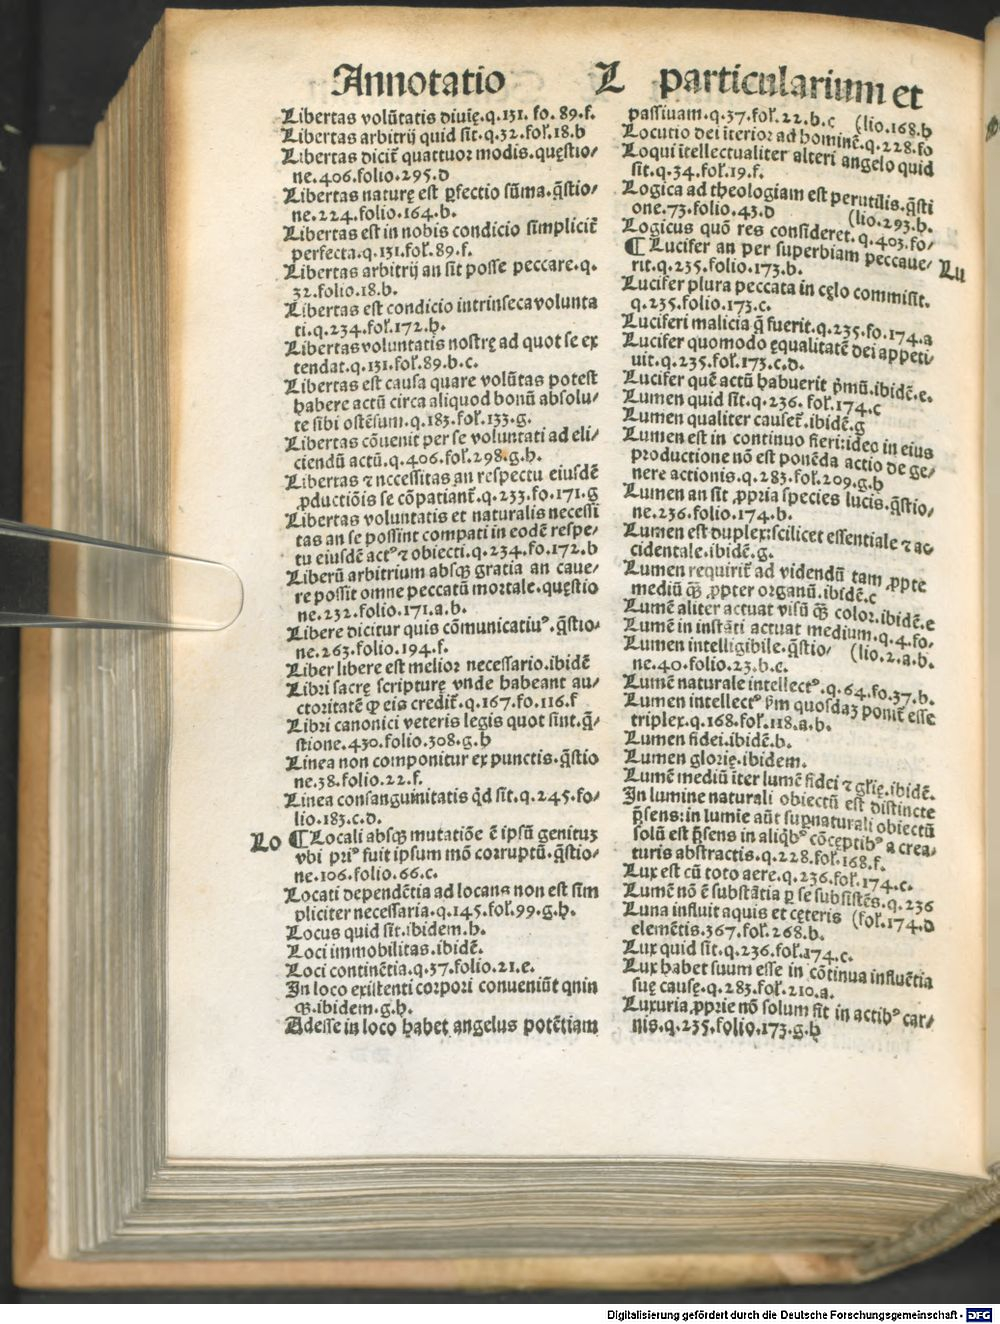 Annotatio L particularium et
Libertas volũtatis diuię.q.131. fo. 89.f.
Libertas arbitrij quid sit.q.32.foł.18.b
Libertas dicit̃ quattuor modis.quęstio/
ne.406.folio.295.d
Libertas naturę est ꝑfectio sũma.q̃stio/
ne.224.folio.164.b.
Libertas est in nobis condicio simplicit̃
perfecta.q.131.foł.89.f.
Libertas arbitrij an sit posse peccare.q.
32.folio.18.b.
Libertas est condicio intrinseca volunta
ti.q.234.foł.172.h.
Libertas voluntatis nostrę ad quot se ex
tendat.q.131.foł.89.b.c.
Libertas est causa quare volũtas potest
habere actũ circa aliquod bonũ absolu/
te sibi ostẽsum.q.183.foł.133.g.
Libertas cõuenit per se voluntati ad eli/
ciendũ actũ.q.406.foł.298.g.h.
Libertas ⁊ necessitas an respectu eiusdẽ
ꝓductiõis se cõpatiant̃.q.233.fo.171.g
Libertas voluntatis et naturalis necessi
tas an se possint compati in eodẽ respe/
tu eiusdẽ actꝰ ⁊ obiecti.q.234.fo.172.b
Liberũ arbitrium absqꝫ gratia an caue/
re possit omne peccatũ mortale.quęstio
ne.232.folio.171.a.b.
Libere dicitur quis cõmunicatiuꝰ.q̃stio/
ne.263.folio.194.f.
Liber libere est melior necessario.ibidẽ
Libri sacrę scripturę vnde habeant au/
ctoritatẽ ꝙ eis credit̃.q.167.fo.116.f
Libri canonici veteris legis quot sint.q̃/
stione.430.folio.308.g.h
Linea non componitur ex punctis.q̃stio
ne.38.folio.22.f.
Linea consanguinitatis q̃d sit.q.245.fo/
lio.183.c.d.
Lo ¶ Locali absqꝫ mutatiõe ẽ ipsũ genituꝫ
vbi priꝰ fuit ipsum mõ corruptũ.q̃stio/
ne.106.folio.66.c.
Locati dependẽtia ad locans non est sim
pliciter necessaria.q.145.foł.99.g.h.
Locus quid sit.ibidem.h.
Loci immobilitas.ibidẽ.
Loci continẽtia.q.37.folio.21.e.
In loco existenti corpori conueniũt qnin
qꝫ.ibidem.g.h.
Adesse in loco habet angelus potẽtiam
passiuam.q.37.foł.22.b.c (lio.168.b
Locutio dei ĩterior ad hominẽ.q.228.fo
Loqui ĩtellectualiter alteri angelo quid
sit.q.34.foł.19.f.
Logica ad theologiam est perutilis.q̃sti
one.73.folio.43.d (lio.293.h.
Logicus quõ res consideret.q.403.fo/
¶ Lucifer an per superbiam peccaue/ Lu
rit.q.235.folio.173.b.
Lucifer plura peccata in cęlo commisit.
q.235.folio.173.c.
Luciferi malicia q̃ fuerit.q.235.fo.174.a
Lucifer quomodo ęqualitatẽ dei appeti/
uit.q.235.foł.173.c.d.
Lucifer quẽ actũ habuerit p̃mũ.ibidẽ.e.
Lumen quid sit.q.236. foł.174.c
Lumen qualiter causet̃.ibidẽ.g
Lumen est in continuo fieri:ideo in eius
productione nõ est ponẽda actio de ge/
nere actionis.q.283.foł.209.g.h
Lumen an sit ꝓpria species lucis.q̃stio/
ne.236.folio.174.b.
Lumen est duplex:scilicet essentiale ⁊ ac
cidentale.ibidẽ.g.
Lumen requirit̃ ad videndũ tam ꝓpte
mediũ qꝫ̃ ꝓpter organũ.ibidẽ.c
Lumẽ aliter actuat visũ qꝫ̃ color.ibidẽ.e
Lumẽ in instãti actuat medium.q.4.fo.
Lumen intelligibile.q̃stio/ (lio.2.a.b.
ne.40.folio.23.b.c.
Lumẽ naturale intellectꝰ.q.64.fo.37.b.
Lumen intellectꝰ p̃m quosdaꝫ ponit̃ esse
triplex.q.168.foł.118.a.b.
Lumen fidei.ibidẽ.b.
Lumen glorię.ibidem.
Lumẽ mediũ ĩter lumẽ fidei ⁊ gl̃ię.ibidẽ.
In lumine naturali obiectũ est distincte
p̃sens:in lumie aũt sup̃naturali obiectũ
solũ est p̃sens in aliq̃bꝰ cõceptibꝰ a crea/
turis abstractis.q.228.foł.168.f.
Lux est cũ toto aere.q.236.foł.174.c.
Lumẽ nõ ẽ substãtia ꝑ se subsistẽs.q.236
Luna influit aquis et cęteris (foł.174.d
elemẽtis.367.foł.268.b.
Lux quid sit.q.236.foł.174.c.
Lux habet suum esse in cõtinua influẽtia
suę causę.q.283.foł.210.a.
Luxuria ꝓprie nõ solum sit in actibꝰ car/
nis.q.235.folio.173.g.h
Digitalisierung gefördert durch die Deutsche Forschungsgemeinschaft - DFG